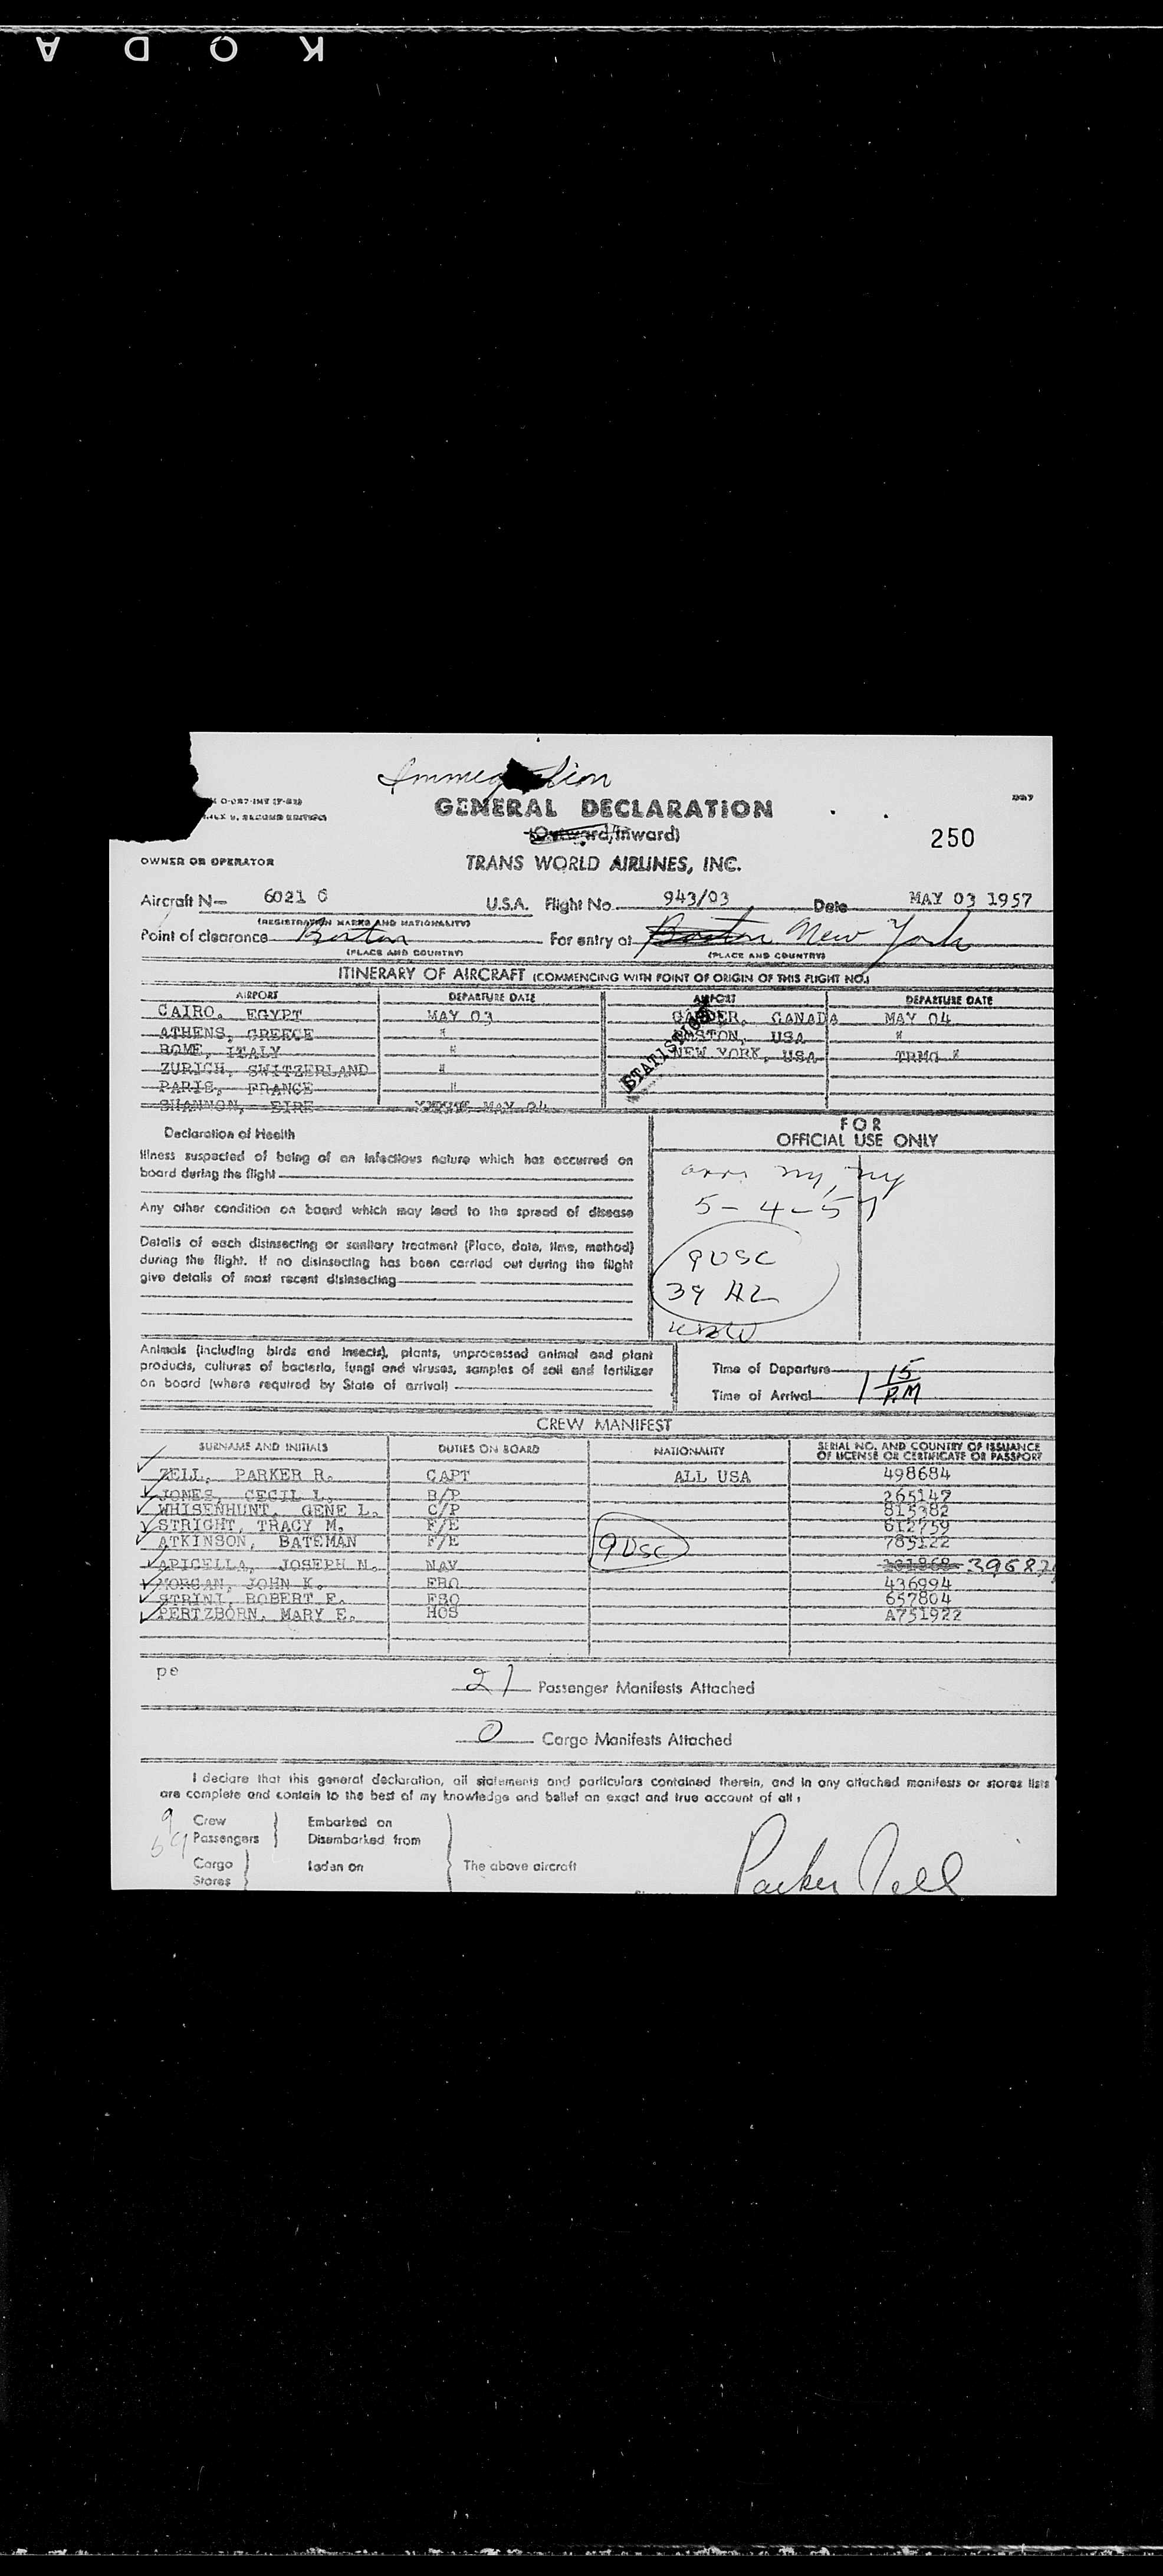 KODA
Immigration
GENERAL DECLARATION
(Outward/Inward)
250
OWNER OR OPERATOR
TRANS WORLD AIRLINES, INC.
Aircraft N— 6021 C U.S.A. Flight No. 943/03 Date MAY 03 1957
(REGISTRATION MARKS AND NATIONALITY)
Point of clearance Boston For entry at Boston New York
(PLACE AND COUNTRY) (PLACE AND COUNTRY)
ITINERARY OF AIRCRAFT (COMMENCING WITH POINT OF ORIGIN OF THIS FLIGHT NO.)
AIRPORT DEPARTURE DATE AIRPORT DEPARTURE DATE
CAIRO, EGYPT MAY 03 GANDER, CANADA MAY 04
ATHENS, GREECE " BOSTON, USA "
ROME, ITALY " NEW YORK, USA TRMG "
ZURICH, SWITZERLAND "
PARIS, FRANCE "
SHANNON, EIRE MAY 04
STATISTICS
Declaration of Health
FOR
OFFICIAL USE ONLY
Illness suspected of being of an infectious nature which has occurred on
board during the flight
Any other condition on board which may lead to the spread of disease
Details of each disinsecting or sanitary treatment (Place, date, time, method)
during the flight. If no disinsecting has been carried out during the flight
give details of most recent disinsecting
arr. ny, ny
5-4-57
9 USC
39 AL
Animals (including birds and insects), plants, unprocessed animal and plant
products, cultures of bacteria, fungi and viruses, samples of soil and fertilizer
on board (where required by State of arrival)
Time of Departure
Time of Arrival 1 15 P.M
CREW MANIFEST
SURNAME AND INITIALS DUTIES ON BOARD NATIONALITY SERIAL NO. AND COUNTRY OF ISSUANCE
OF LICENSE OR CERTIFICATE OR PASSPORT
ZELL, PARKER R. CAPT ALL USA 498684
JONES, CECIL L. B/P 265147
WHISENHUNT, GENE L. C/P 815382
STRIGHT, TRACY M. F/E 612759
ATKINSON, BATEMAN F/E 9 USC 785122
APICELLA, JOSEPH N. NAV
MORGAN, JOHN K. FRO 436994
STRINI, ROBERT E. FSO 657804
PERTZBORN, MARY E. HOS A751922
pe
21 Passenger Manifests Attached
0 Cargo Manifests Attached
I declare that this general declaration, all statements and particulars contained therein, and in any attached manifests or stores lists
are complete and contain to the best of my knowledge and belief an exact and true account of all:
9 Crew Embarked on
Passengers Disembarked from
Cargo Laden on The above aircraft
Stores
Parker Zell